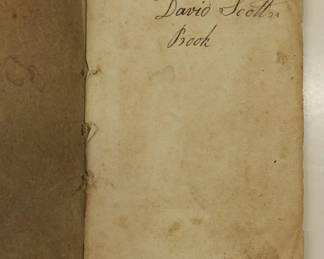 David Scott's
Book